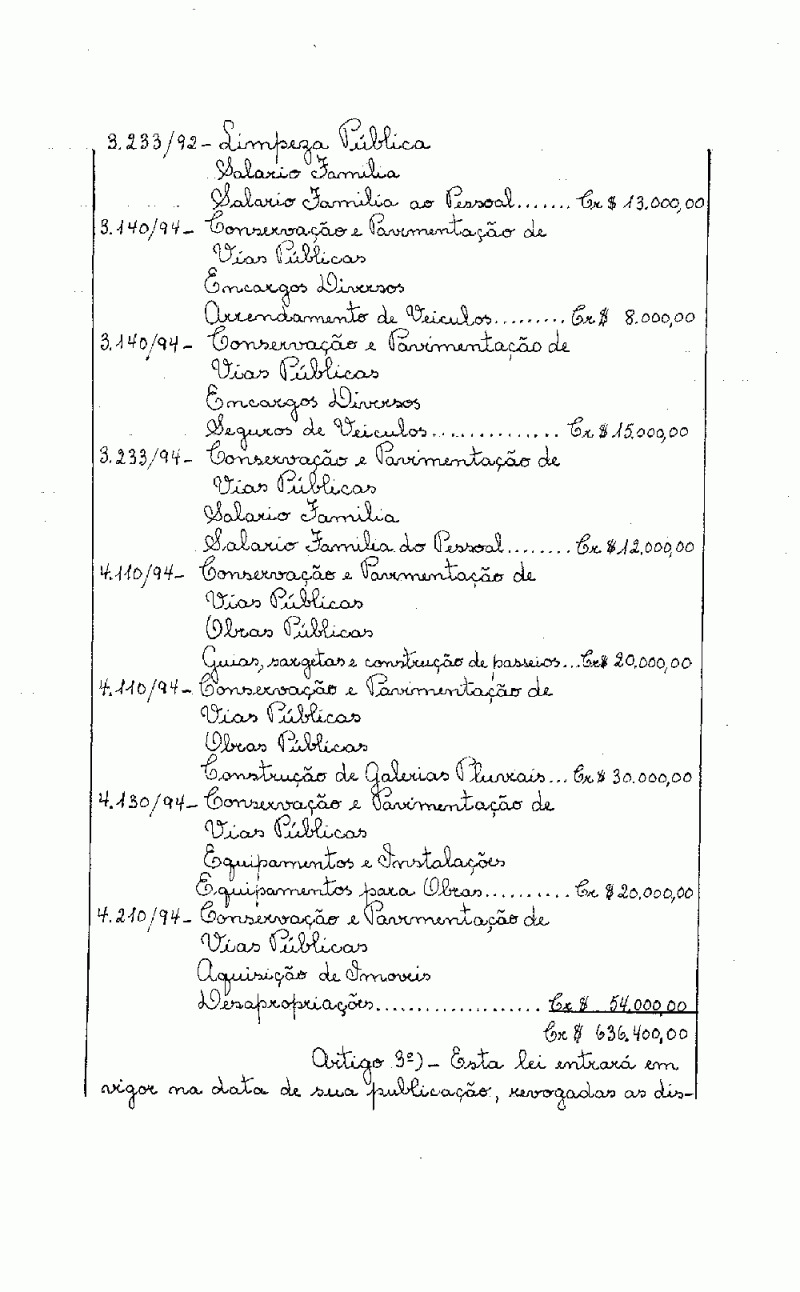 3.233/92 - Limpeza Pública
Salario Familia
Salario Familia ao Pessoal....... Cr$ 13.000,00
3.140/94 - Conservação e Pavimentação de
Vias Públicas
Encargos Diversos
Arrendamento de Veiculos......... Cr$ 8.000,00
3.140/94 - Conservação e Pavimentação de
Vias Públicas
Encargos Diversos
Seguros de Veiculos.............. Cr$ 15.000,00
3.233/94 - Conservação e Pavimentação de
Vias Públicas
Salario Familia
Salario Familia do Pessoal........ Cr$ 12.000,00
4.110/94 - Conservação e Pavimentação de
Vias Públicas
Obras Públicas
Guias, sargetas e construção de passeios... Cr$ 20.000,00
4.110/94 - Conservação e Pavimentação de
Vias Públicas
Obras Públicas
Construção de Galerias Pluvrais... Cr$ 30.000,00
4.130/94 - Conservação e Pavimentação de
Vias Públicas
Equipamentos e Instalações
Equipamentos para Obras.......... Cr$ 20.000,00
4.210/94 - Conservação e Pavimentação de
Vias Públicas
Aquisição de Imoveis
Desapropriações.................... Cr$ 54.000,00
Cr$ 636.400,00
Artigo 3º) - Esta lei entrará em
vigor na data de sua publicação, revogadas as dis-